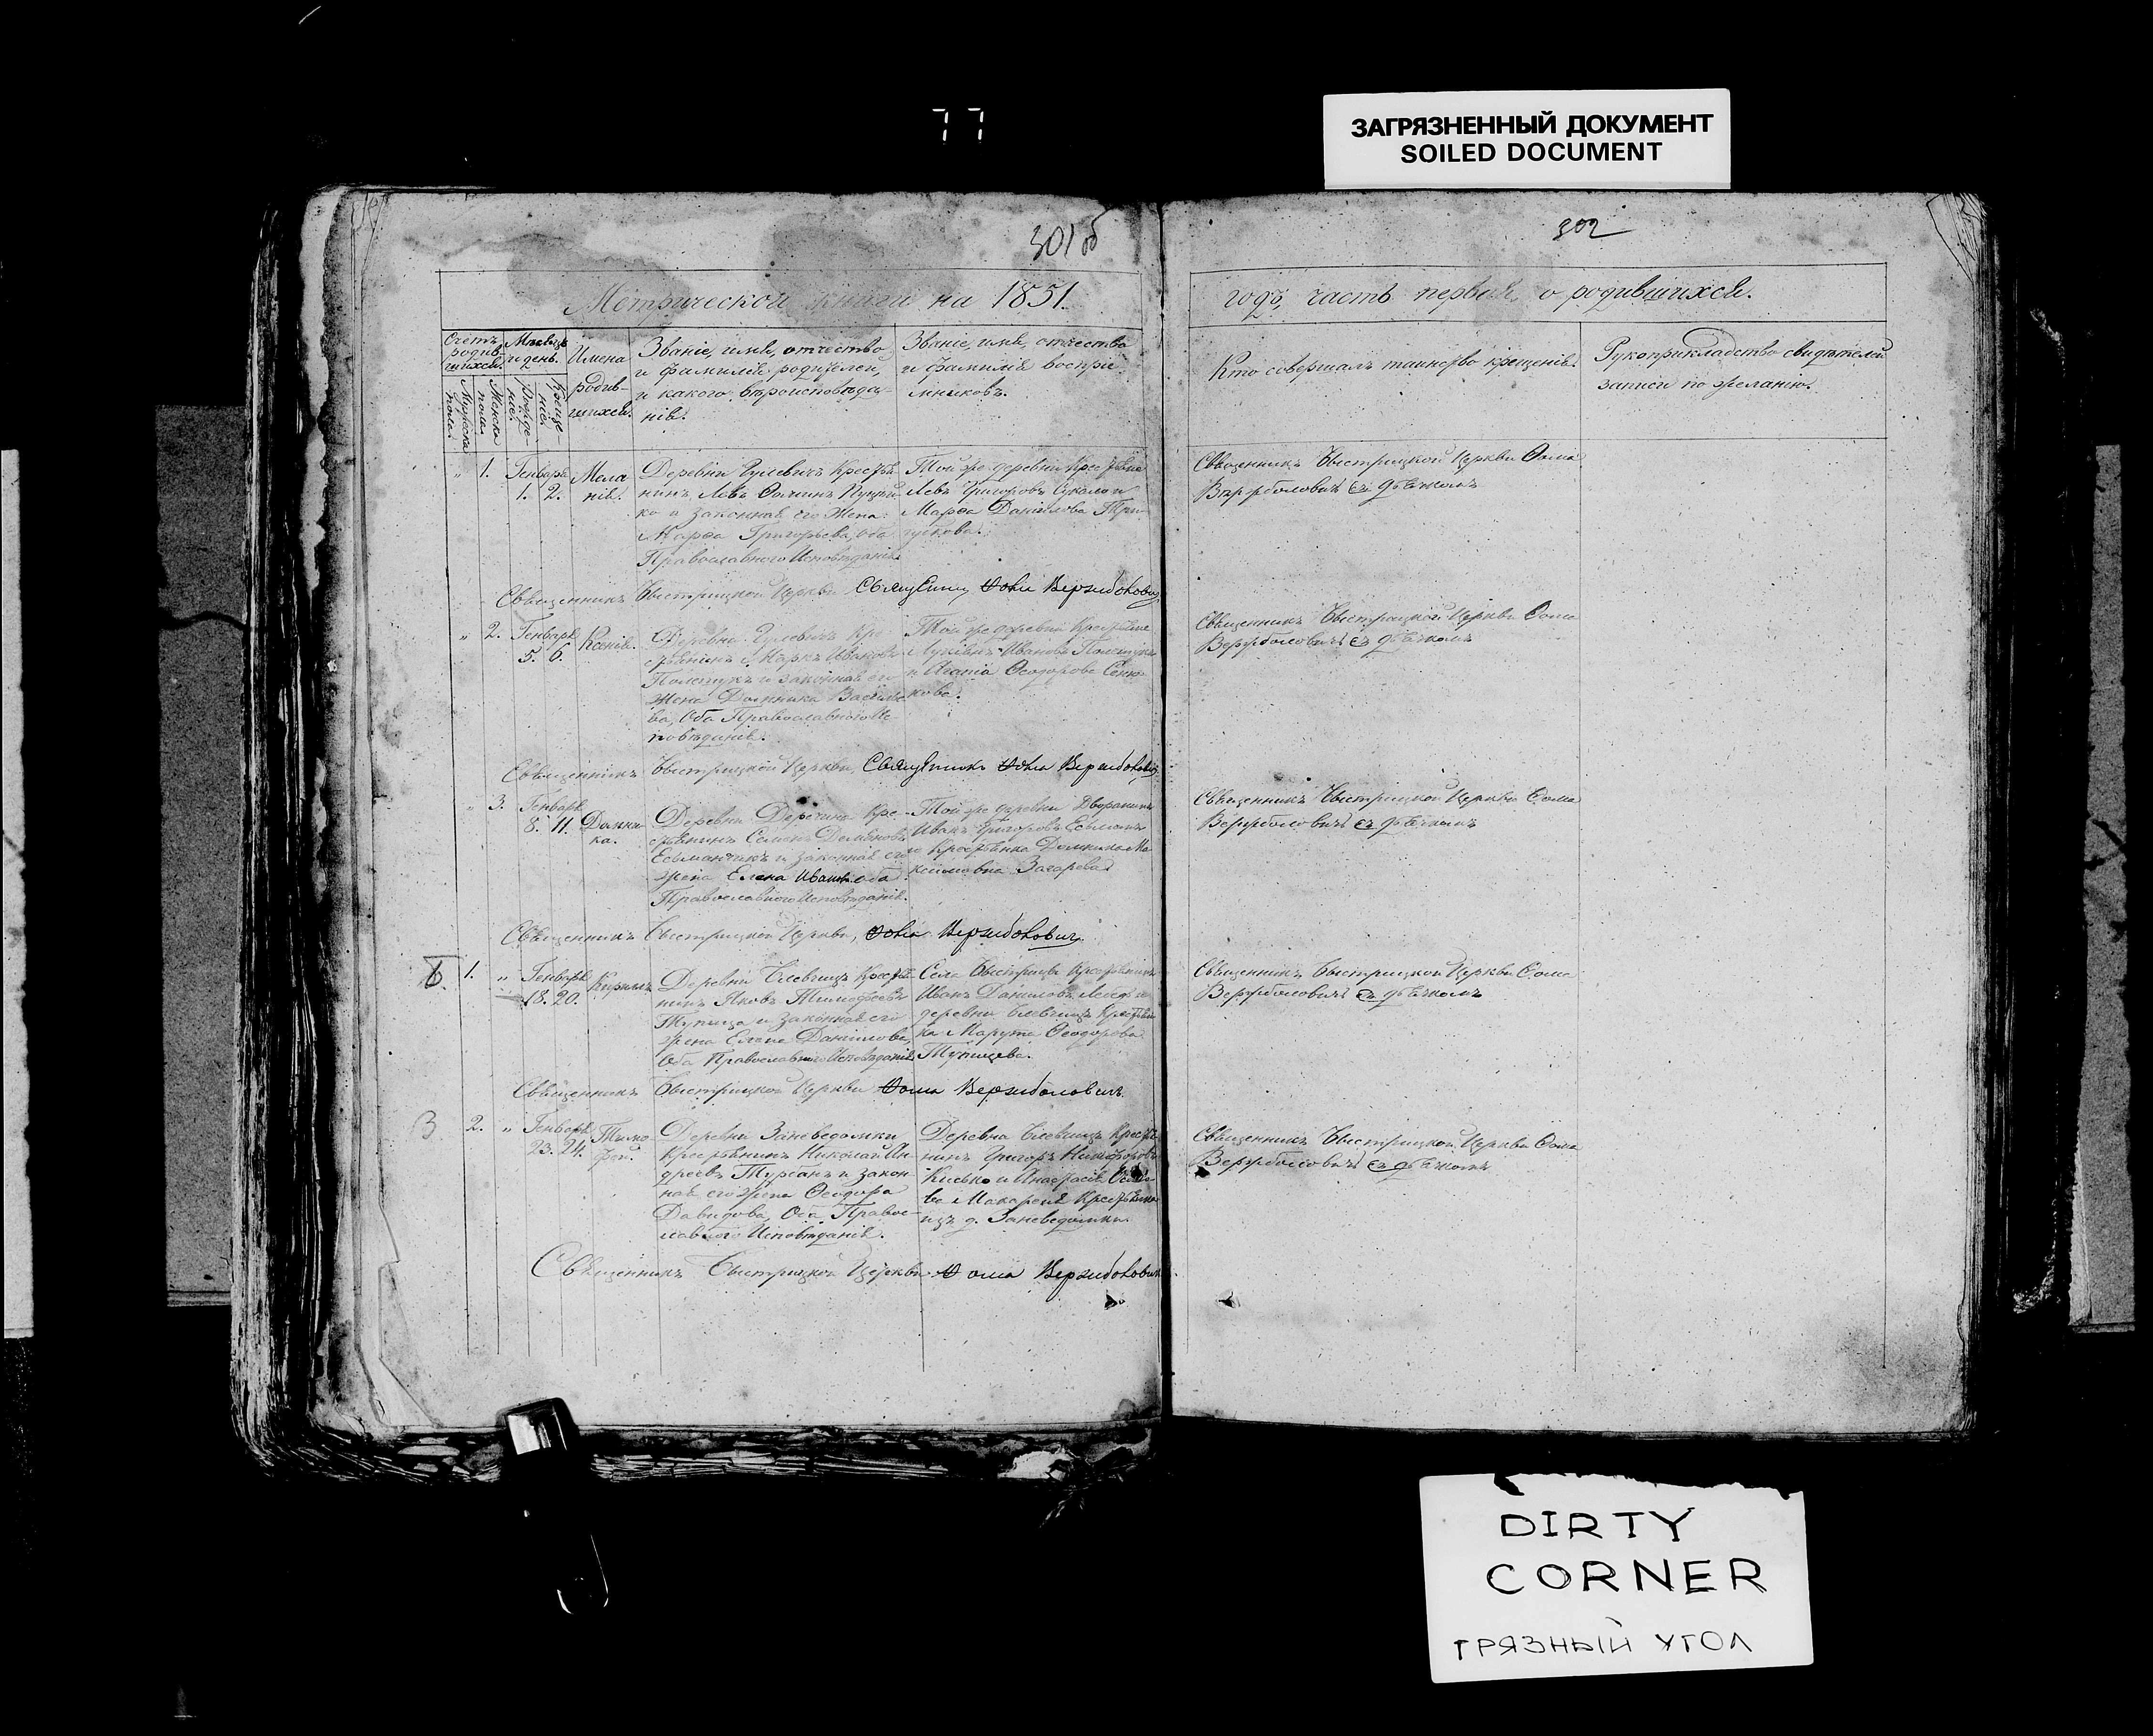 77
ЗАГРЯЗНЕННЫЙ ДОКУМЕНТ
SOILED DOCUMENT
301об
302
Метрической книги на 1851.
годъ, часть первая, о родившихся.
Счетъ родившихся.
Мужеска пола.
Женска пола.
Мѣсяцъ и день.
Рожденія.
Крещенія.
Имена родившихся.
Званіе, имя, отчество,
и фамилія родителей,
и какого вѣроисповѣда-
нія.
Званіе, имя, отчество
и фамилія воспріе-
мниковъ.
Кто совершалъ таинство крещенія.
Рукоприкладство свидѣтелей
записи по желанію.
" 1. Генваря
1. 2.
Мела
нія.
Деревни Гулевичъ Крестья
нинъ Левъ Ѳоминъ
ко и законная его жена
Марѳа Григорьева, оба
Православного Исповѣданія.
Той же деревни Крестьяне
Левъ Григоровъ и
Марѳа Даніилова
Священникъ Быстрицкой Церкви Ѳома
Вержболовичъ съ дьячкомъ
Священникъ Быстрицкой Церкви Священникъ Ѳома Вержболовичъ
" 2. Генваря
5. 6.
Ксенія.
Деревни Гулевичъ Кре
стьянинъ Маркъ Ивановъ
Полещукъ и законная его
жена Домника Василье
ва, Оба Православного Ис-
повѣданія.
Той же деревни Крестьяне
Лукіянъ Ивановъ Полещукъ
и Агапія Ѳеодорова
Священникъ Быстрицкой Церкви Ѳома
Вержболовичъ съ дьячкомъ
Священникъ Быстрицкой Церкви, Священникъ Ѳома Вержболовичъ
" 3. Генваря
8. 11.
Домни
ка.
Деревни Кре-
стьянинъ Семенъ Демьяновъ
Есьманчикъ и законная его
жена Елена Иванова оба
Православного Исповѣданія.
Той же деревни Дворянинъ
Иванъ Григоровъ Есьманъ
и Крестьянка Домника Ма
ксимовна
Священникъ Быстрицкой Церкви Ѳома
Вержболовичъ съ дьячкомъ
Священникъ Быстрицкой Церкви, Ѳома Вержболовичъ
1. " Генваря
18. 20.
Кириллъ
Деревни Блевчицъ Крестья-
нинъ Яковъ Тимофеевъ
Тупица и законная его
жена Елена Даніилова,
Оба Православного Исповѣданія.
Села Быстрицы Крестьянинъ
Иванъ Даниловъ и
деревни Блевчицъ Крестьян
ка Марута Ѳеодорова
Тупицева.
Священникъ Быстрицкой Церкви Ѳома
Вержболовичъ съ дьячкомъ
Священникъ Быстрицкой Церкви Ѳома Вержболовичъ
2. " Генваря
23. 24.
Тимо
фей.
Деревни Заневедомки
крестьянинъ Николай Ан
дреевъ Турсанъ и закон
ная его жена Ѳеодора
Давидова, Оба Правос-
лавного Исповѣданія.
Деревни Блевчицъ Крестья
нинъ Григоръ Никифоровъ
Кисько и Анастасія
ва Крестьянка
изъ д. Заневедомки.
Священникъ Быстрицкой Церкви Ѳома
Вержболовичъ съ дьячкомъ
Священникъ Быстрицкой Церкви Ѳома Вержболовичъ
DIRTY
CORNER
ГРЯЗНЫЙ УГОЛ